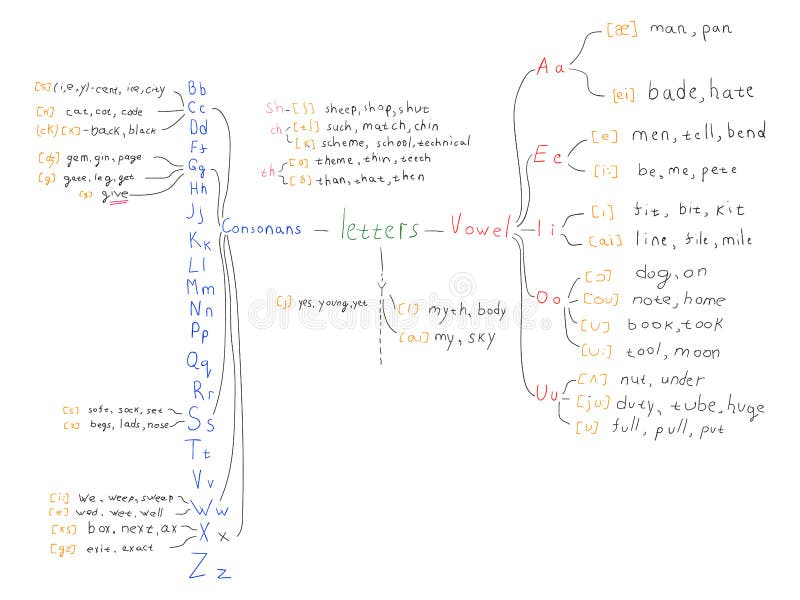 [s] (i, e, y)-cent, ice, city
[k] cat, cot, code
(ck) [k] - back, black
[dʒ] gem, gin, page
[g] gate, leg, get
[g] give
Bb
Cc
Dd
Ff
Gg
Hh
Jj
Kk
Ll
Mm
Nn
Pp
Qq
Rr
Ss
Tt
Vv
Ww
Xx
Zz
[s] soft, sock, set
[z] begs, lads, nose
[i:] we, weep, sweep
[e] wed, wet, well
[ks] box, next, ax
[gz] exit, exact
Consonans
Sh - [ʃ] sheep, shop, shut
ch [tʃ] such, match, chin
[k] scheme, school, technical
th [θ] theme, thin, teeth
[ð] than, that, then
letters
Y
[j] yes, young, yet
[i] myth, body
[ai] my, sky
Vowel
Aa
[æ] man, pan
[ei] bade, hate
Ee
[e] men, tell, bend
[i:] be, me, pete
Ii
[i] fit, bit, kit
[ai] line, file, mile
Oo
[ɔ] dog, on
[ou] note, home
[u] book, took
[u:] tool, moon
Uu
[ʌ] nut, under
[ju:] duty, tube, huge
[u] full, pull, put
dreamstime